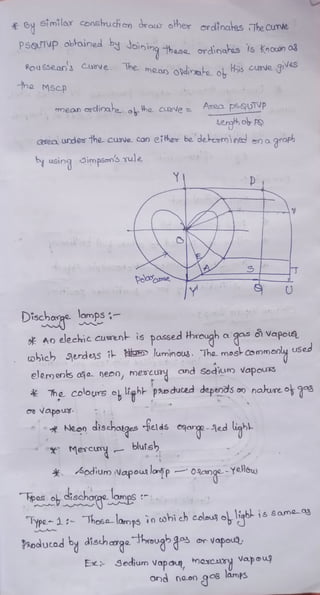 * By similar construction draw other ordinates. The curve
PSQUTVP obtained by Joining these ordinates is known as
Roussean's curve The mean ordinate of this curve gives
the MSCP
mean ordinate of the curve = Area PSQUTVP
Length of PQ
area under the curve can either be determined on a graph
by using Simpson's rule
Y P
V
O
E
A S T
Polar curve
Y' Q U
Discharge lamps :-
* An electric current is passed through a gas or vapour
which renders it luminous. The most commonly used
elements are neon, mercury and sodium vapours
* The colours of light produced depends on nature of gas
or vapour.
* Neon discharges - fields orange-red light
* Mercury - bluish
* Sodium vapour lamp - orange-yellow
Types of discharge lamps :-
Type-1 :- Those lamps in which colour of light is same as
Produced by discharge through gas or vapour,
Ex:- Sodium vapour, mercury vapour
and neon gas lamps